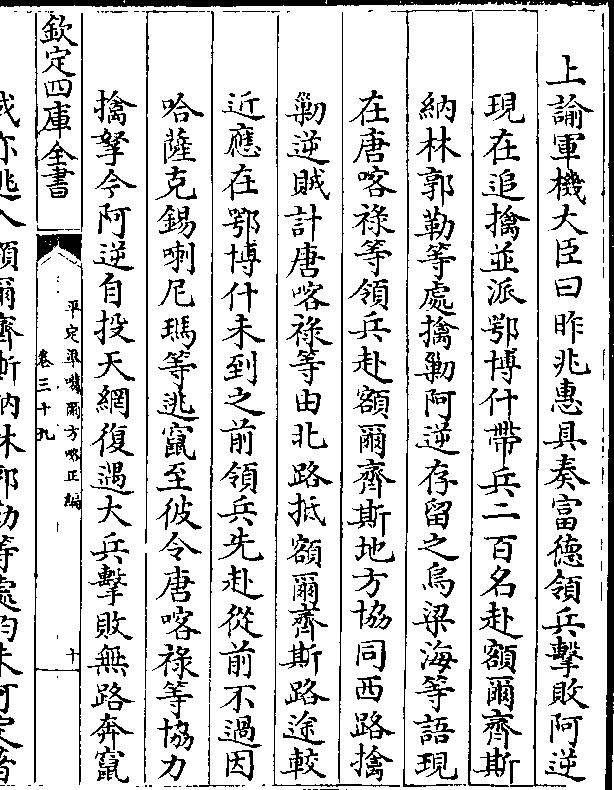 上諭軍機大臣曰昨兆惠具奏富德領兵擊敗阿逆
現在追擒並派鄂博什帶兵二百名赴額爾齊斯
納林郭勒等處擒勦阿逆存留之烏梁海等語現
在唐喀祿等領兵赴額爾齊斯地方協同西路擒
勦逆賊計唐喀祿等由北路抵額爾齊斯路途較
近應在鄂博什未到之前領兵先赴從前不過因
哈薩克錫喇尼瑪等逃竄至彼令唐喀祿等協力
擒拏今阿逆自投天網復遇大兵擊敗無路奔竄
欽定四庫全書
平定準噶爾方略正編
卷三十九
十
或亦逃入額爾齊斯納林郭勒等處均未可定著